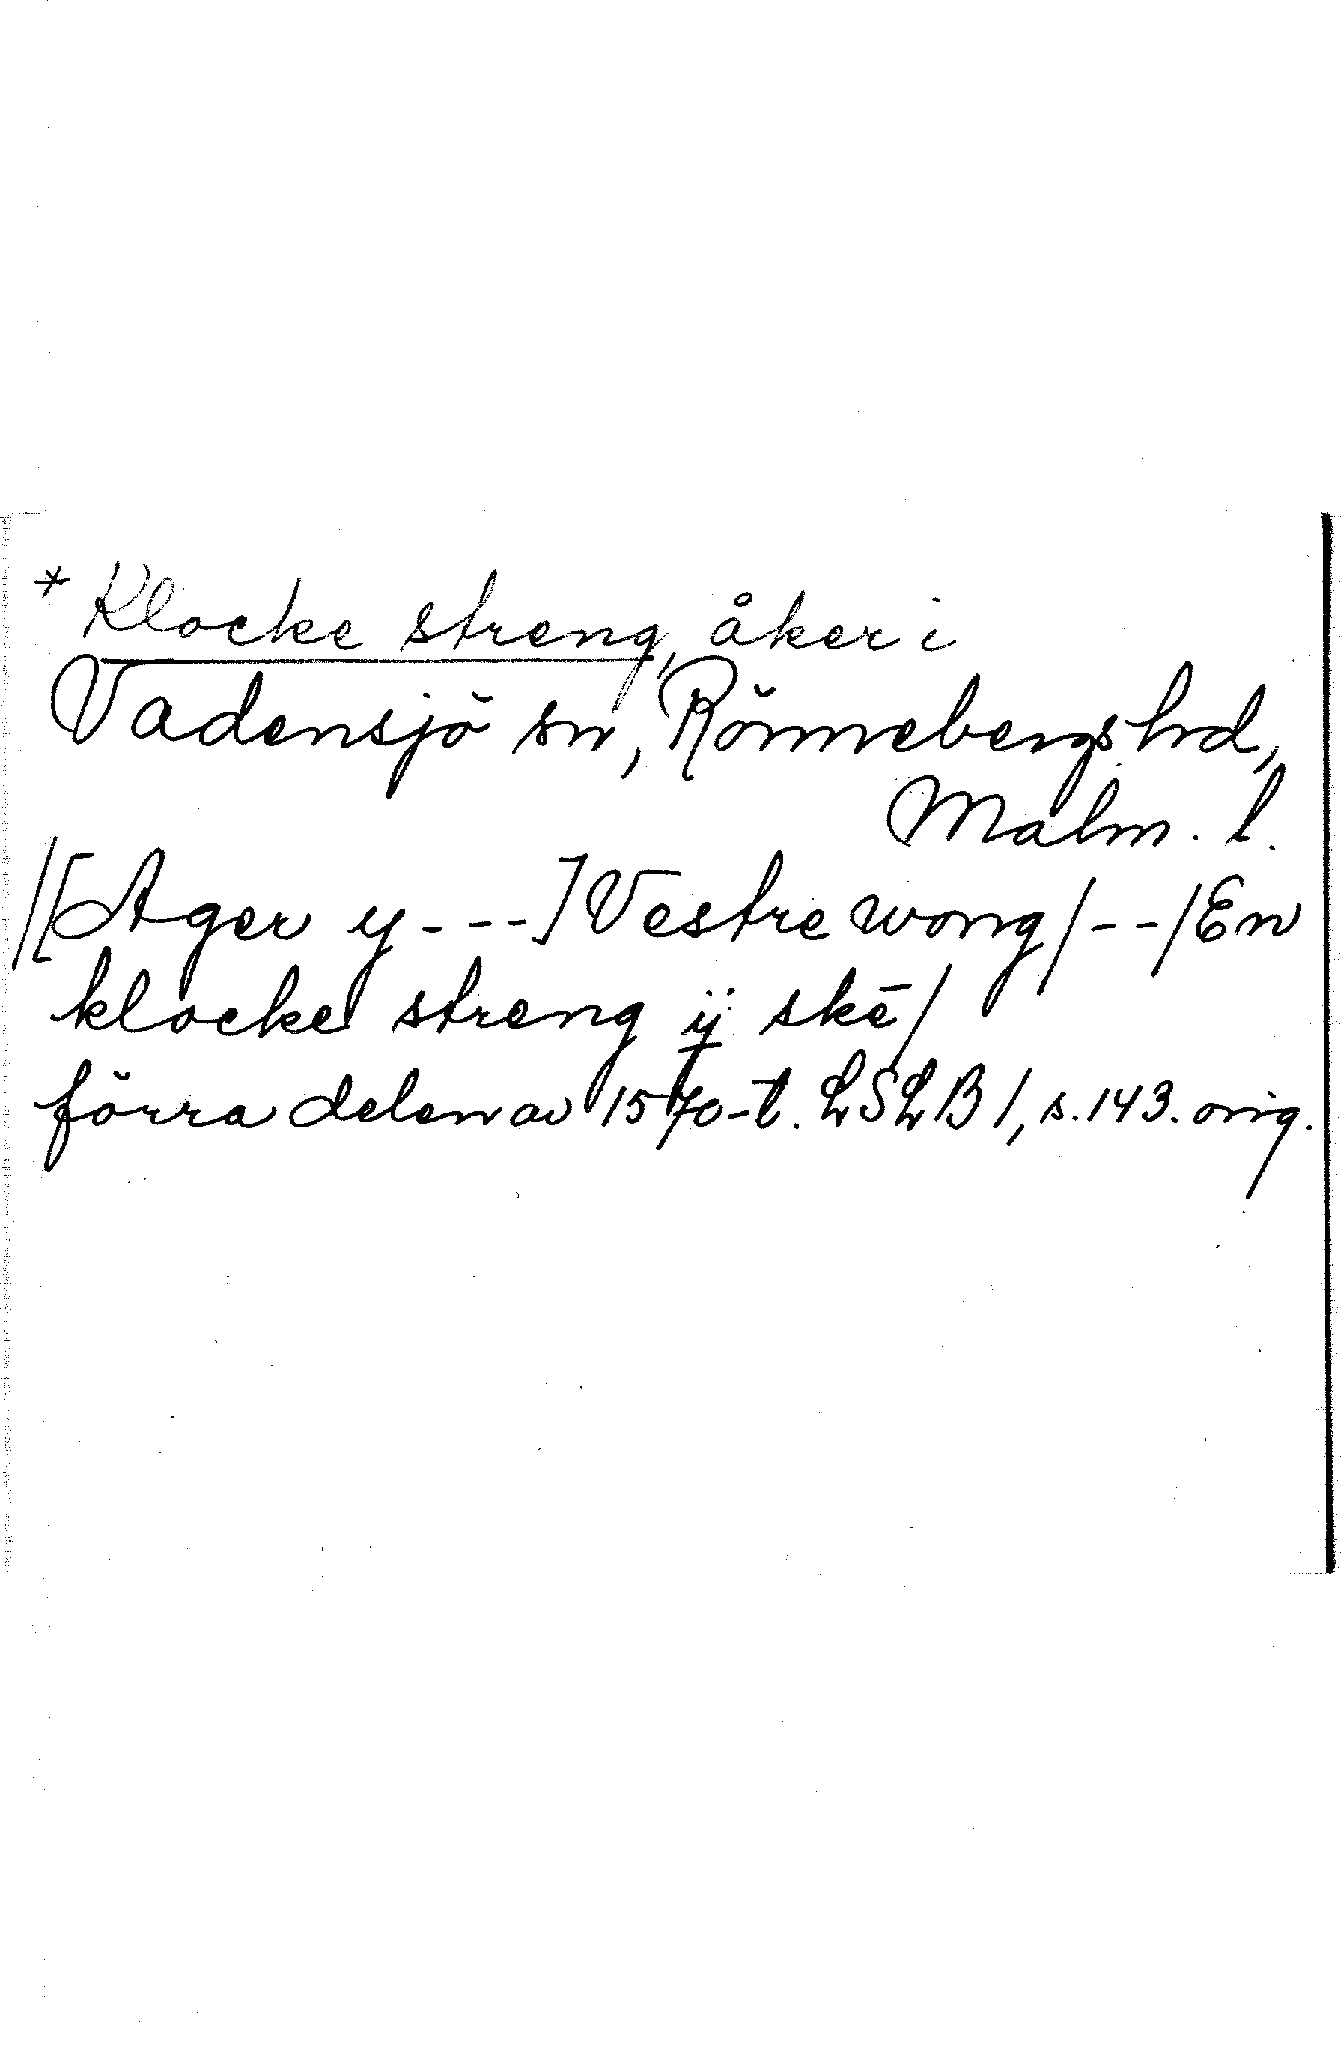 * Klocke streng, åker i
Vadensjö sn, Rönnebergs hd,
Malm. l.
/[Ager y - - -] Vestre wong/ - - /En
klocke streng ij skē/
förra delen av 1570-t. LSLB 1, s. 143. orig.